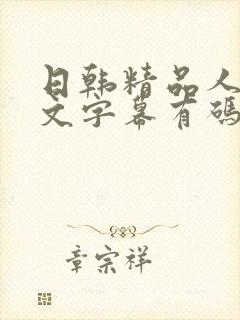 日韩精品人
文字幕有码
章宗祥